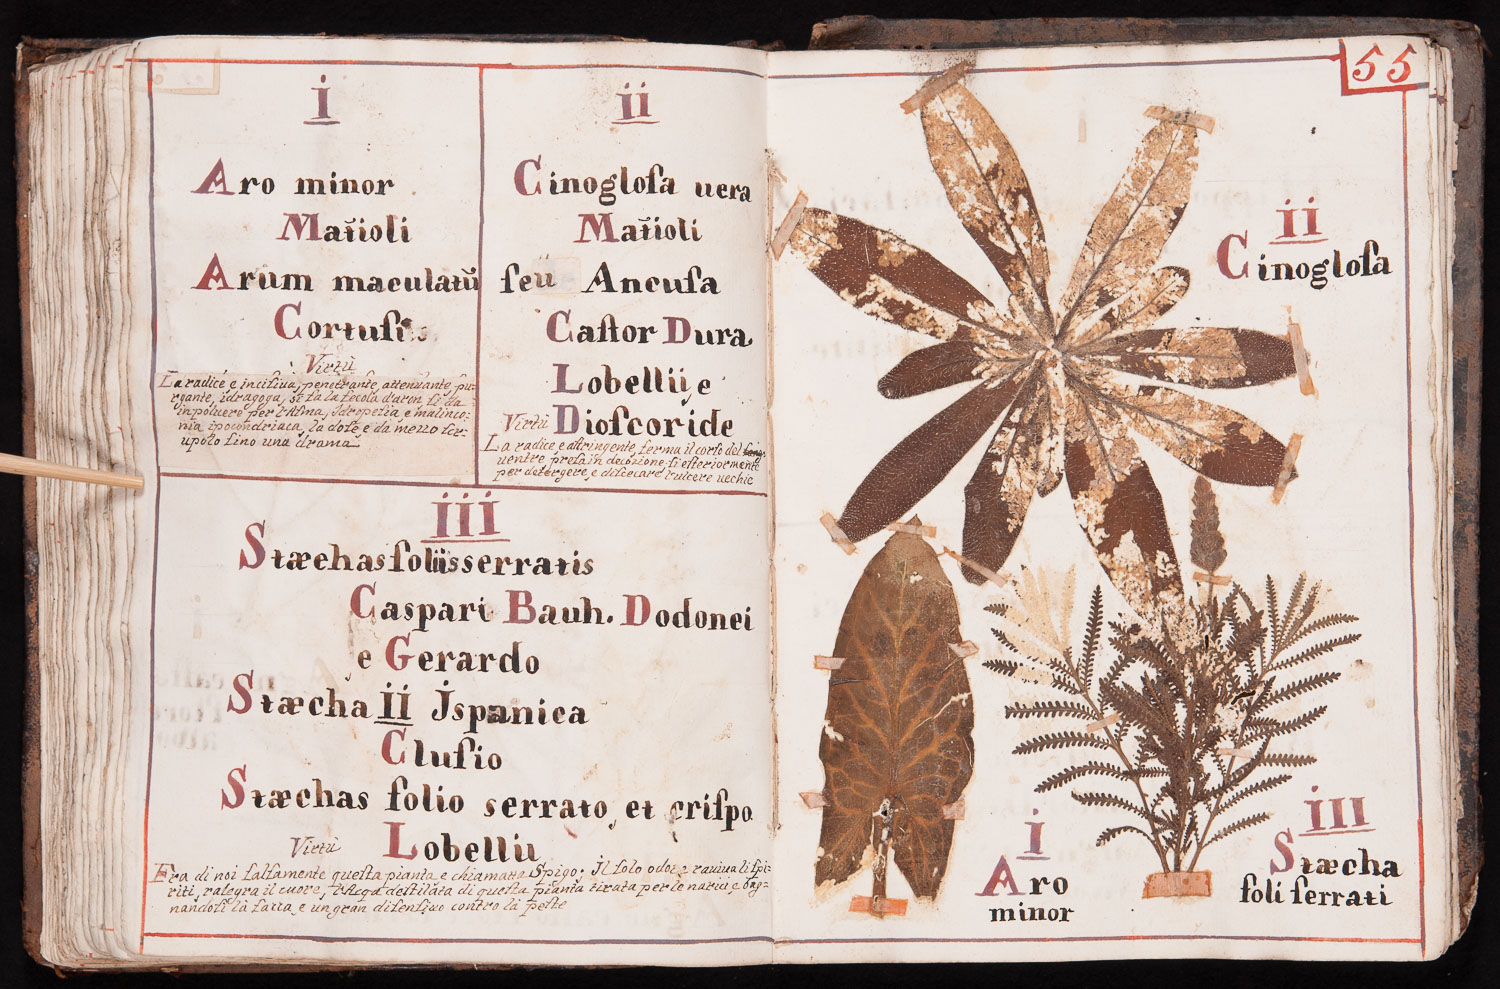 i
Aro minor
Matioli
Arum maculatū
Cortusi
Virtù
La radice è incisiua, penetrante, attenuante, pu-
rgante, idragoga, si fa la fecola d'aron si da
in poluere per l'Asma, Idropesia e malinco-
nia ipocondriaca, la dose è da mezzo scr-
upolo sino una drama
ii
Cinoglosa uera
Matioli
seu Ancusa
Castor Dura
Lobellii, e
Virtù Dioscoride
La radice è astringente, ferma il corso del
uentre presa in decozione, si esteriormente
per detergere, e disecare l'ulcere uechie
iii
Stæchas foliis serratis
Caspari Bauh. Dodonei
e Gerardo
Stæcha ii Jspanica
Clusio
Stæchas folio serrato, et crispo
Virtù Lobellii
Fra di noi falsamente questa pianta e chiamata Spigo; il solo odore rauiua li spi-
riti, ralegra il cuore, l'Acqa destilata di questa pianta tirata per le narici, e bag-
nandosi la facia, e un gran difensiuo contro la peste
55
ii
Cinoglosa
i
Aro
minor
iii
Stæcha
foli serrati